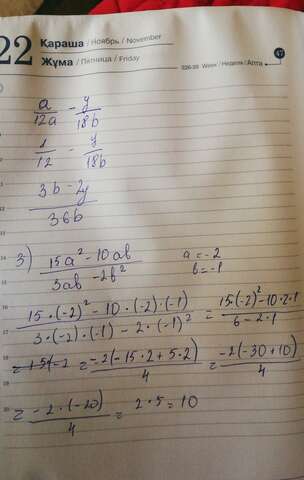 22 Қараша / Ноябрь / November
Жұма / Пятница / Friday
326-39 Week / Неделя / Апта 47
a/12a - y/18b
1/12 - y/18b
(3b - 2y)/36b
3) (15a² - 10ab)/(3ab - 2b²) a = -2
b = -1
(15·(-2)² - 10·(-2)·(-1))/(3·(-2)·(-1) - 2·(-1)²) = (15(-2)² - 10·2·1)/(6 - 2·1)
= (-2(-15·2 + 5·2))/4 = (-2(-30 + 10))/4
= (-2·(-20))/4 = 2·5 = 10